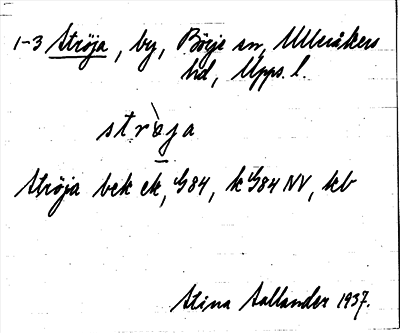 1-3 Ströja, by, Börje sn, Ulleråkers
hd, Upps. l.
ströja
Ströja bek ek, G84, k G84 NV, kb
Stina Sallander 1937.